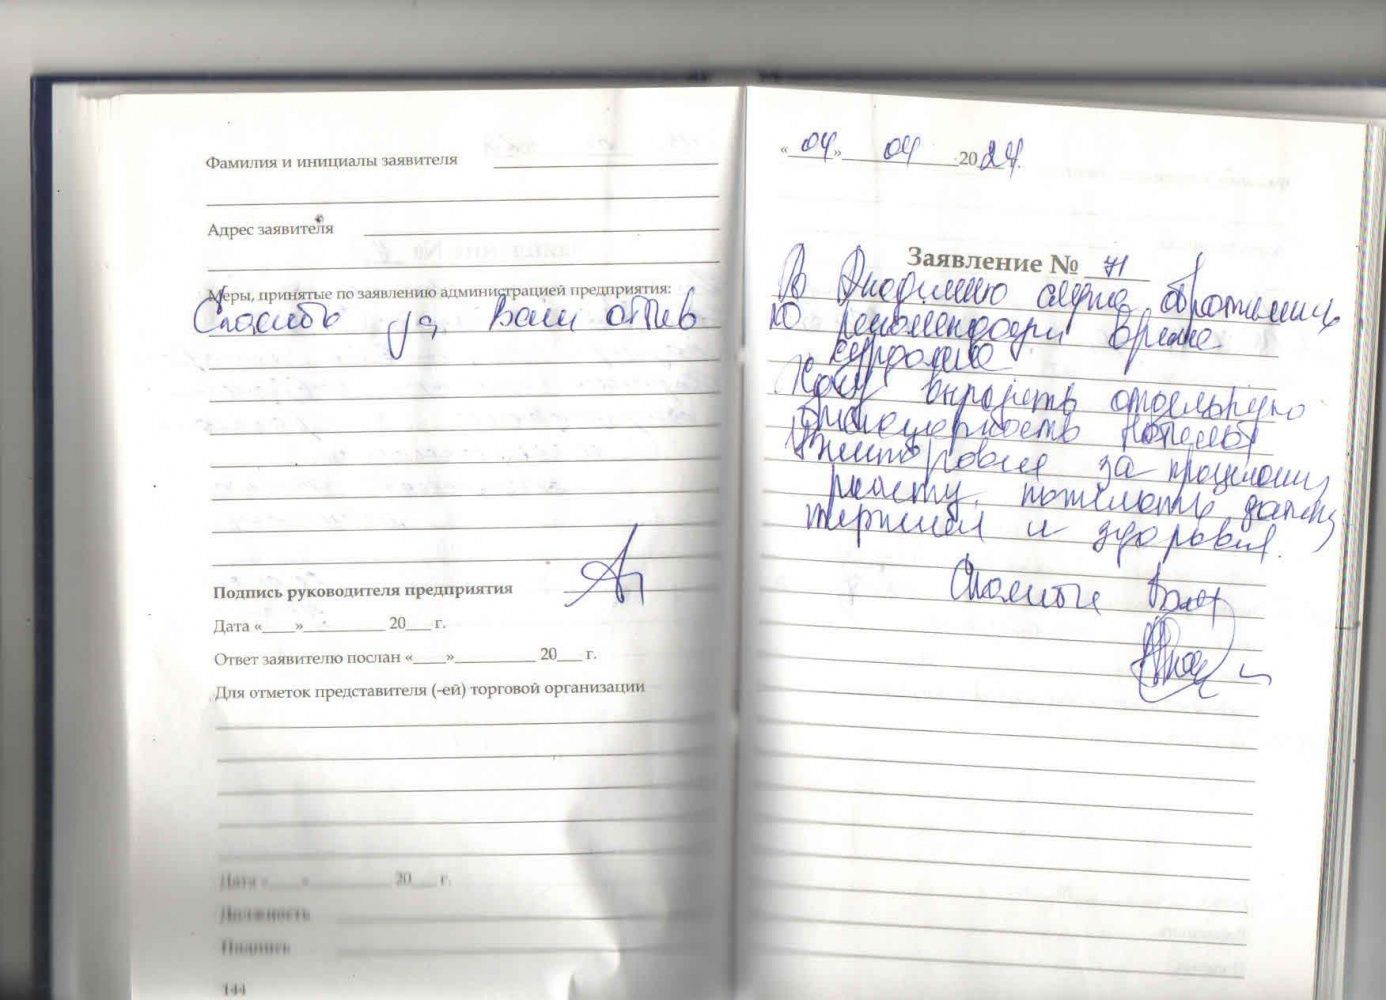 Фамилия и инициалы заявителя
Адрес заявителя
Меры, принятые по заявлению администрацией предприятия:
Спасибо за Ваш отзыв
Подпись руководителя предприятия
Дата «____»__________ 20___ г.
Ответ заявителю послан «____»__________ 20___ г.
Для отметок представителя (-ей) торговой организации
Дата «____»__________ 20___ г.
Должность
Подпись
144
«04» 04 2024 г.
Заявление № 71
В
по рекомендации врача
Хочу выразить отдельную
благодарность Наталье
Викторовне за
работу, пожелать
терпения и здоровья.
Спасибо Вам